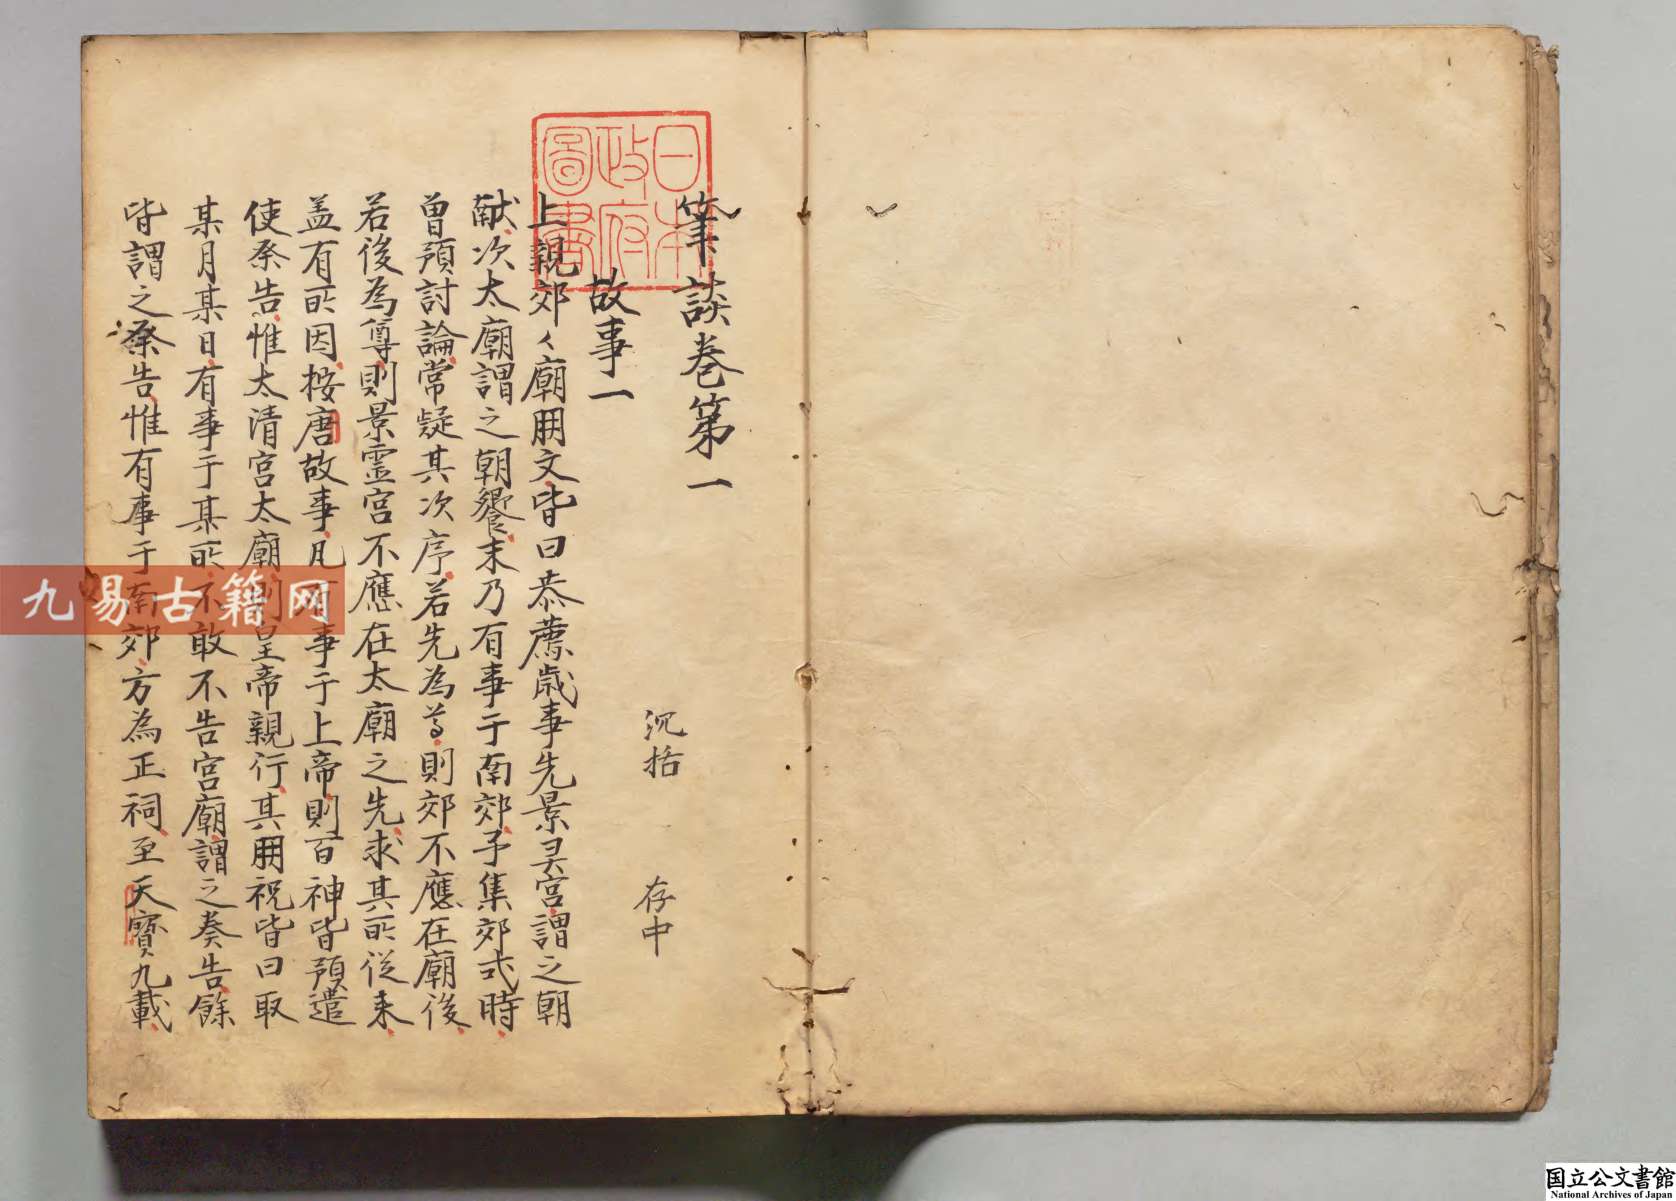 筆談卷第一
沉括 存中
故事一
上親郊〻廟册文皆曰恭薦歲事先景灵宮謂之朝
献次太廟謂之朝饗末乃有事于南郊予集郊式時
曽預討論常疑其次序若先為尊則郊不應在廟後
若後為尊則景霊宮不應在太廟之先求其所從来
盖有所因按唐故事凡有事于上帝則百神皆預遣
使祭告惟太清宮太廟則皇帝親行其册祝皆曰取
某月某日有事于某所不敢不告宮廟謂之奏告餘
皆謂之祭告惟有事于南郊方為正祠至天寳九載
日本政府圖書
九易古籍网
国立公文書館
National Archives of Japan